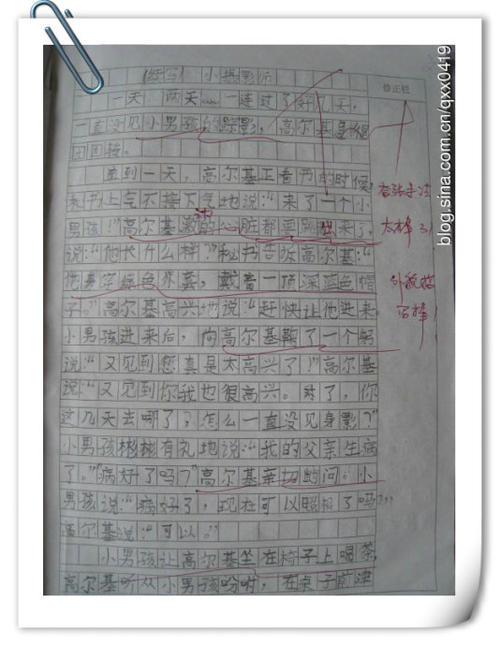 (续写) 小摄影师
一天 两天……一连过了好几天,
一直没见小男孩的踪影,高尔基急得
团团转。
直到一天,高尔基正看书的时候,
秘书上气不接下气地说:“来了一个小
男孩!”高尔基激动的心脏都要蹦出来了,
说:“他长什么样?”秘书告诉高尔基:“
他身穿绿色外套,戴着一顶深蓝色帽
子”高尔基高兴地说“赶快让他进来”
小男孩进来后,向高尔基鞠了一个躬
说:“又见到您真是太高兴了!”高尔基
说:“又见到你我也很高兴。对了,你
这几天去哪了?怎么一直没见身影?”
小男孩彬彬有礼地说:“我的父亲生病
了。”“病好了吗?”高尔基亲切的问。小
男孩说:“病好了,现在可以照相了吗?”
高尔基说:“可以。”
小男孩让高尔基坐在椅子上喝茶,
高尔基听从小男孩吩咐,在桌子前津
修正栏
夸张手法
太棒了!
外貌描
写棒!
blog.sina.com.cn/qxx0419